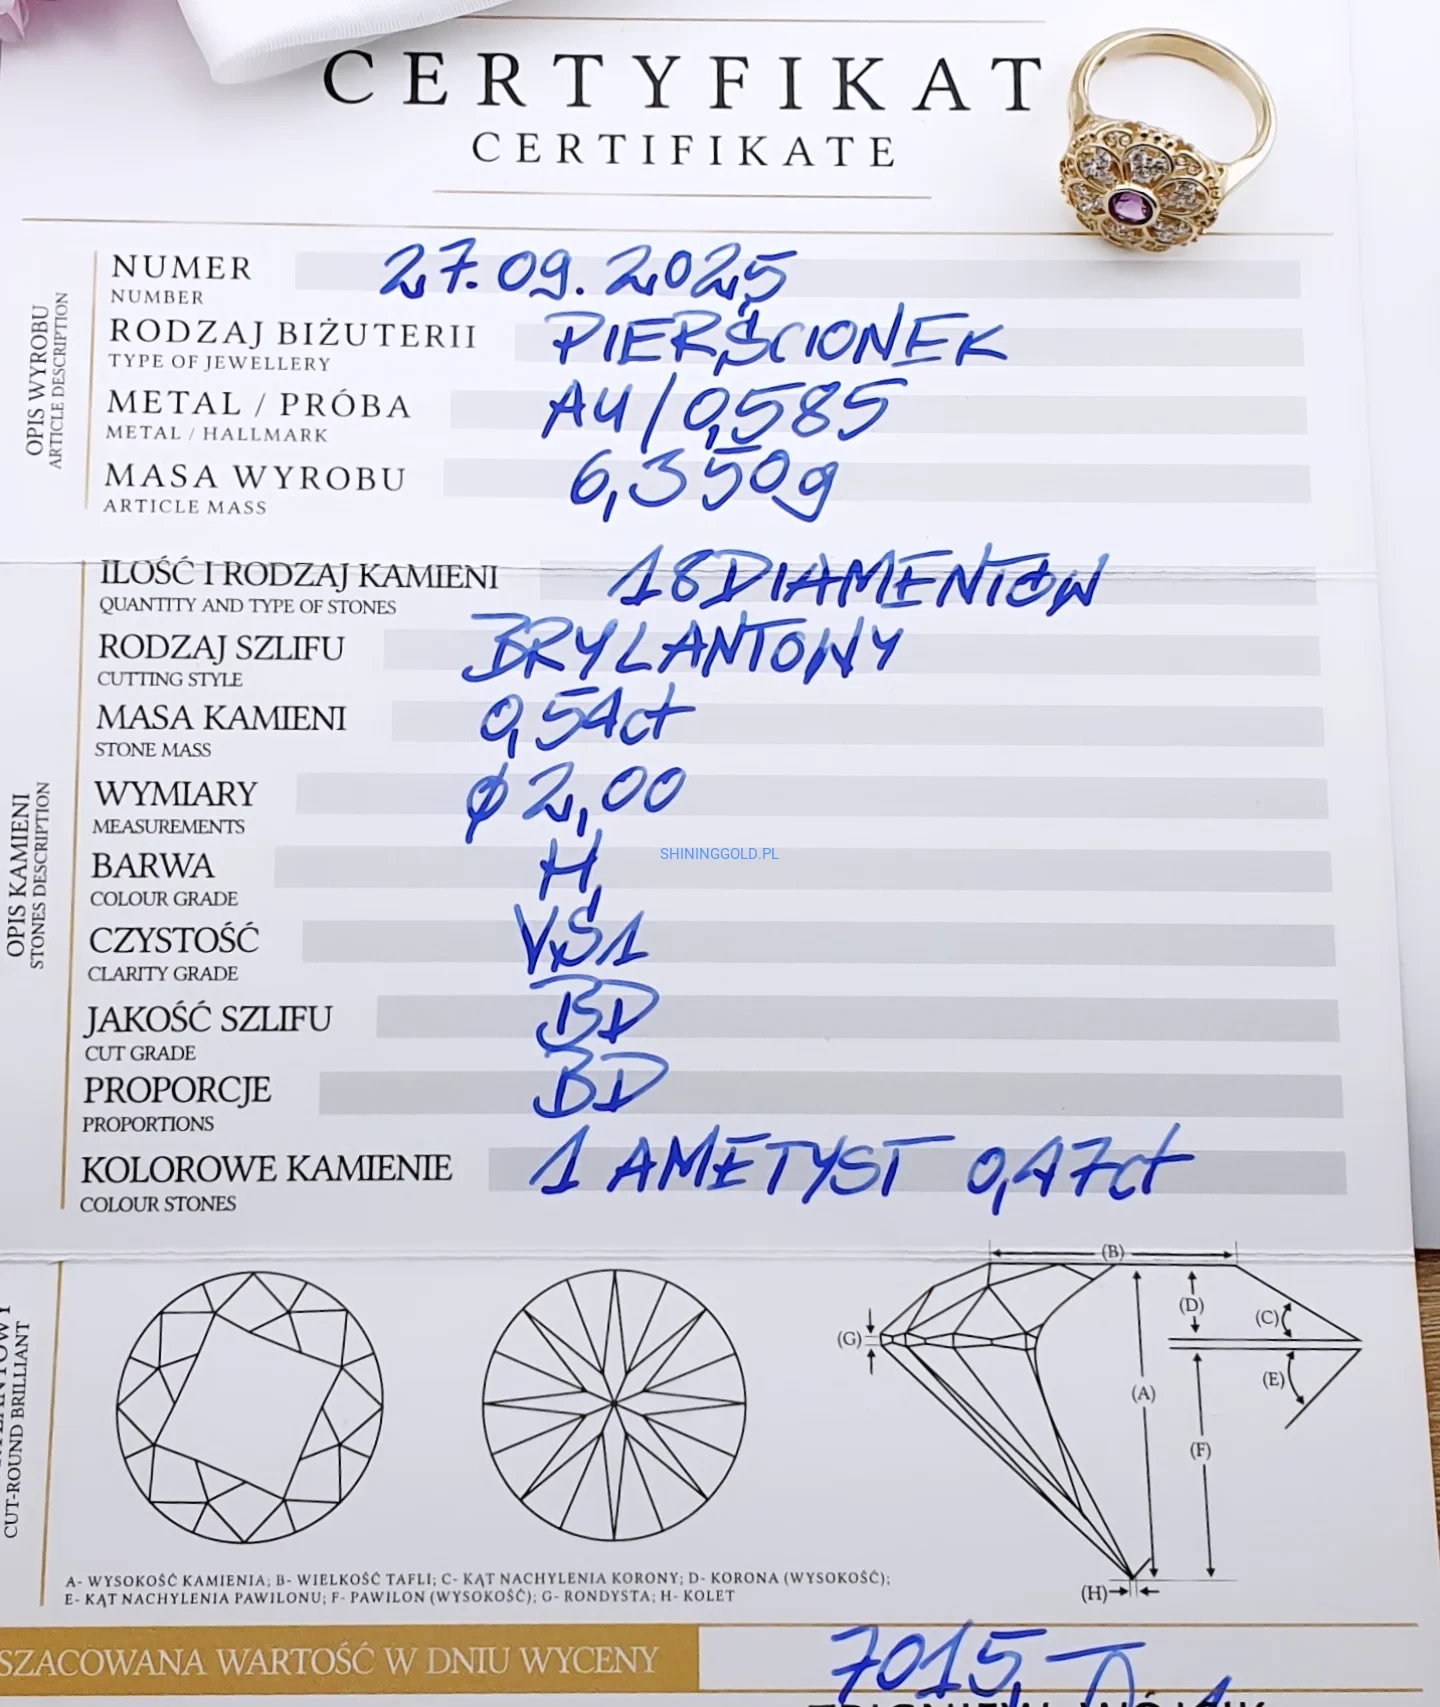 CERTYFIKAT
CERTIFIKATE
OPIS WYROBU
ARTICLE DESCRIPTION
NUMER 27.09.2025
NUMBER
RODZAJ BIŻUTERII PIERŚCIONEK
TYPE OF JEWELLERY
METAL / PRÓBA AU/0,585
METAL / HALLMARK
MASA WYROBU 6,350g
ARTICLE MASS
OPIS KAMIENI
STONES DESCRIPTION
ILOŚĆ I RODZAJ KAMIENI 18 DIAMENTÓW
QUANTITY AND TYPE OF STONES
RODZAJ SZLIFU BRYLANTOWY
CUTTING STYLE
MASA KAMIENI 0,54ct
STONE MASS
WYMIARY ø 2,00
MEASUREMENTS
BARWA H
COLOUR GRADE
SHININGGOLD.PL
CZYSTOŚĆ VS1
CLARITY GRADE
JAKOŚĆ SZLIFU BD
CUT GRADE
PROPORCJE BD
PROPORTIONS
KOLOROWE KAMIENIE 1 AMETYST 0,47ct
COLOUR STONES
CUT-ROUND BRILLIANT
(B)
(D)
(C)
(G)
(E)
(A)
(F)
(H)
A- WYSOKOŚĆ KAMIENIA; B- WIELKOŚĆ TAFLI; C- KĄT NACHYLENIA KORONY; D- KORONA (WYSOKOŚĆ);
E- KĄT NACHYLENIA PAWILONU; F- PAWILON (WYSOKOŚĆ); G- RONDYSTA; H- KOLET
SZACOWANA WARTOŚĆ W DNIU WYCENY 7015,-